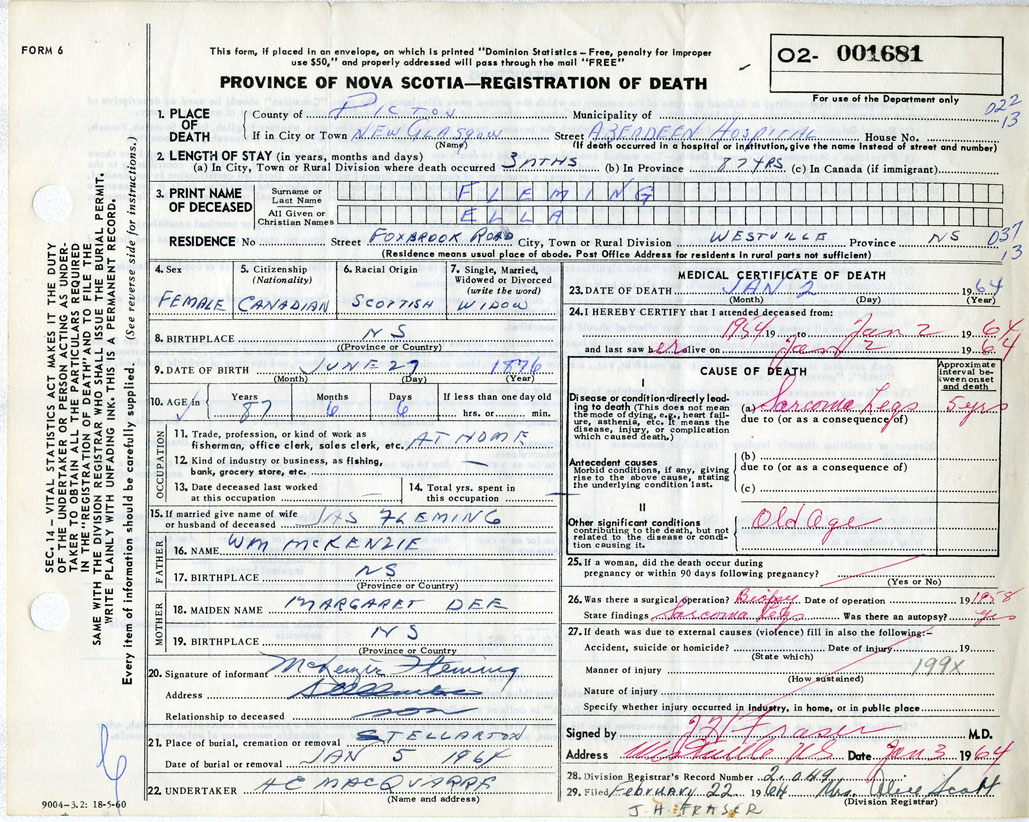 FORM 6
This form, if placed in an envelope, on which is printed "Dominion Statistics – Free, penalty for improper
use $50," and properly addressed will pass through the mail "FREE"
O2- 001681
PROVINCE OF NOVA SCOTIA—REGISTRATION OF DEATH
For use of the Department only
022
13
1. PLACE OF DEATH
County of PICTOU Municipality of
If in City or Town NEW GLASGOW Street ABERDEEN HOSPITAL House No.
(Name) (If death occurred in a hospital or institution, give the name instead of street and number)
2. LENGTH OF STAY (in years, months and days)
(a) In City, Town or Rural Division where death occurred 3 MTHS (b) In Province 87 YRS (c) In Canada (if immigrant)
3. PRINT NAME OF DECEASED
Surname or Last Name FLEMING
All Given or Christian Names ELLA
RESIDENCE No Street FOXBROOK ROAD City, Town or Rural Division WESTVILLE Province NS
037
13
(Residence means usual place of abode. Post Office Address for residents in rural parts not sufficient)
4. Sex
FEMALE
5. Citizenship (Nationality)
CANADIAN
6. Racial Origin
SCOTTISH
7. Single, Married, Widowed or Divorced (write the word)
WIDOW
8. BIRTHPLACE NS
((Province or Country)
9. DATE OF BIRTH JUNE 27 1876
(Month) (Day) (Year)
10. AGE in Years Months Days If less than one day old
87 6 6 hrs. or min.
OCCUPATION
11. Trade, profession, or kind of work as
fisherman, office clerk, sales clerk, etc. AT HOME
12. Kind of industry or business, as fishing,
bank, grocery store, etc. —
13. Date deceased last worked
at this occupation
14. Total yrs. spent in
this occupation —
15. If married give name of wife
or husband of deceased JAS FLEMING
FATHER
16. NAME WM MCKENZIE
17. BIRTHPLACE NS
(Province or Country)
MOTHER
18. MAIDEN NAME MARGARET DEE
19. BIRTHPLACE NS
(Province or Country)
20. Signature of informant McKenzie Fleming
Address Stellarton
Relationship to deceased son
21. Place of burial, cremation or removal STELLARTON
Date of burial or removal JAN 5 1964
22. UNDERTAKER HE MACQUARR
(Name and address)
9004-3.2: 18-5-60
MEDICAL CERTIFICATE OF DEATH
23. DATE OF DEATH JAN 2 1964
(Month) (Day) (Year)
24. I HEREBY CERTIFY that I attended deceased from:
1954 19 to Jan 2 1964
and last saw her alive on Jan 2 1964
CAUSE OF DEATH
Approximate interval between onset and death
I
Disease or condition directly leading to death (This does not mean the mode of dying, e.g., heart failure, asthenia, etc. It means the disease, injury, or complication which caused death.)
(a) Sarcoma Legs 5 yrs
due to (or as a consequence of)
Antecedent causes
Morbid conditions, if any, giving rise to the above cause, stating the underlying condition last.
(b)
due to (or as a consequence of)
(c)
II
Other significant conditions
contributing to the death, but not related to the disease or condition causing it.
Old Age
25. If a woman, did the death occur during
pregnancy or within 90 days following pregnancy?
(Yes or No)
26. Was there a surgical operation? Biopsy Date of operation 19 1958
State findings Sarcoma Legs Was there an autopsy? yes
27. If death was due to external causes (violence) fill in also the following:—
Accident, suicide or homicide? Date of injury 19
(State which)
Manner of injury 199X
(How sustained)
Nature of injury
Specify whether injury occurred in industry, in home, or in public place
Signed by Fraser M.D.
Address Westville NS Date Jan 3 1964
28. Division Registrar's Record Number 2,049
29. Filed February 22 1964 Mrs. Olive Scott
(Division Registrar)
J.H. FRASER
SEC. 14 – VITAL STATISTICS ACT MAKES IT THE DUTY
OF THE UNDERTAKER OR PERSON ACTING AS UNDER-
TAKER TO OBTAIN ALL THE PARTICULARS REQUIRED
IN THE "REGISTRATION OF DEATH" AND TO FILE THE
SAME WITH THE DIVISION REGISTRAR WHO SHALL ISSUE THE BURIAL PERMIT.
WRITE PLAINLY WITH UNFADING INK. THIS IS A PERMANENT RECORD.
Every item of information should be carefully supplied. (See reverse side for instructions.)